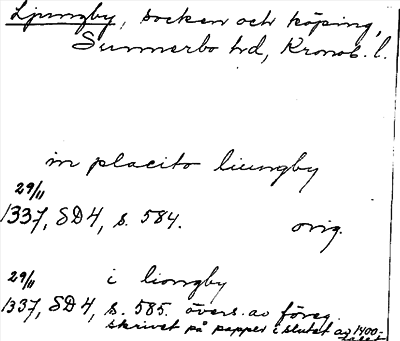 Ljungby, socken och köping,
Sunnerbo hd, Kronob. l.
in placito liungby
29/11
1337, SD4, s. 584. orig.
29/11 i liongby
1337, SD4, s. 585. övers. av föreg.
skrivet på papper i slutet av 1400-
talet